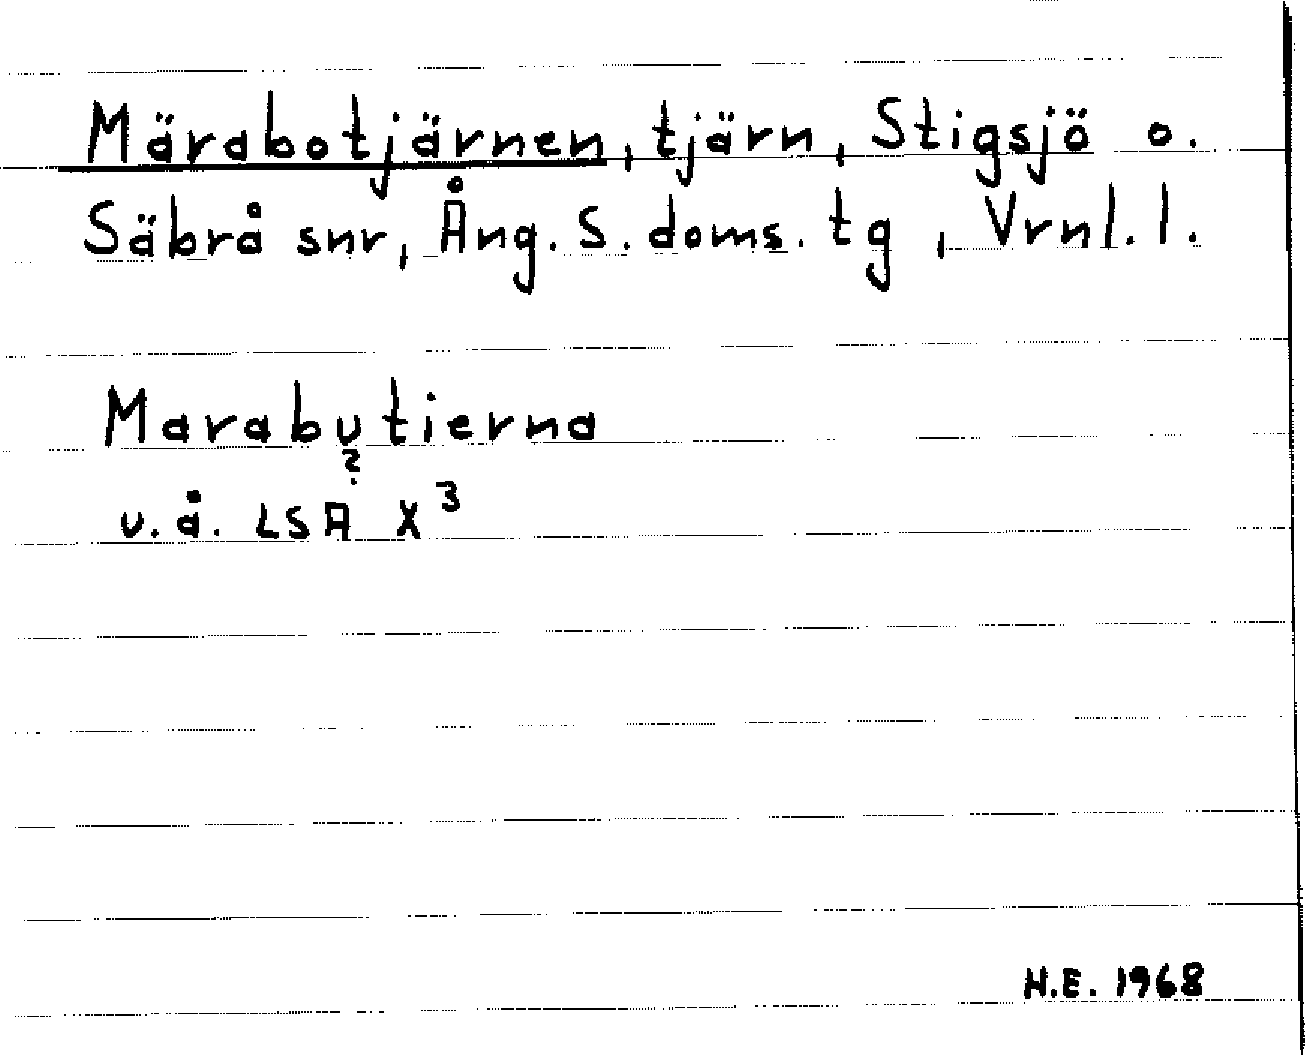 Märabotjärnen, tjärn, Stigsjö o.
Säbrå snr, Ång. S. doms. tg, Vrnl. l.
Marabutierna
?
u.å. LSA X3
H.E. 1968